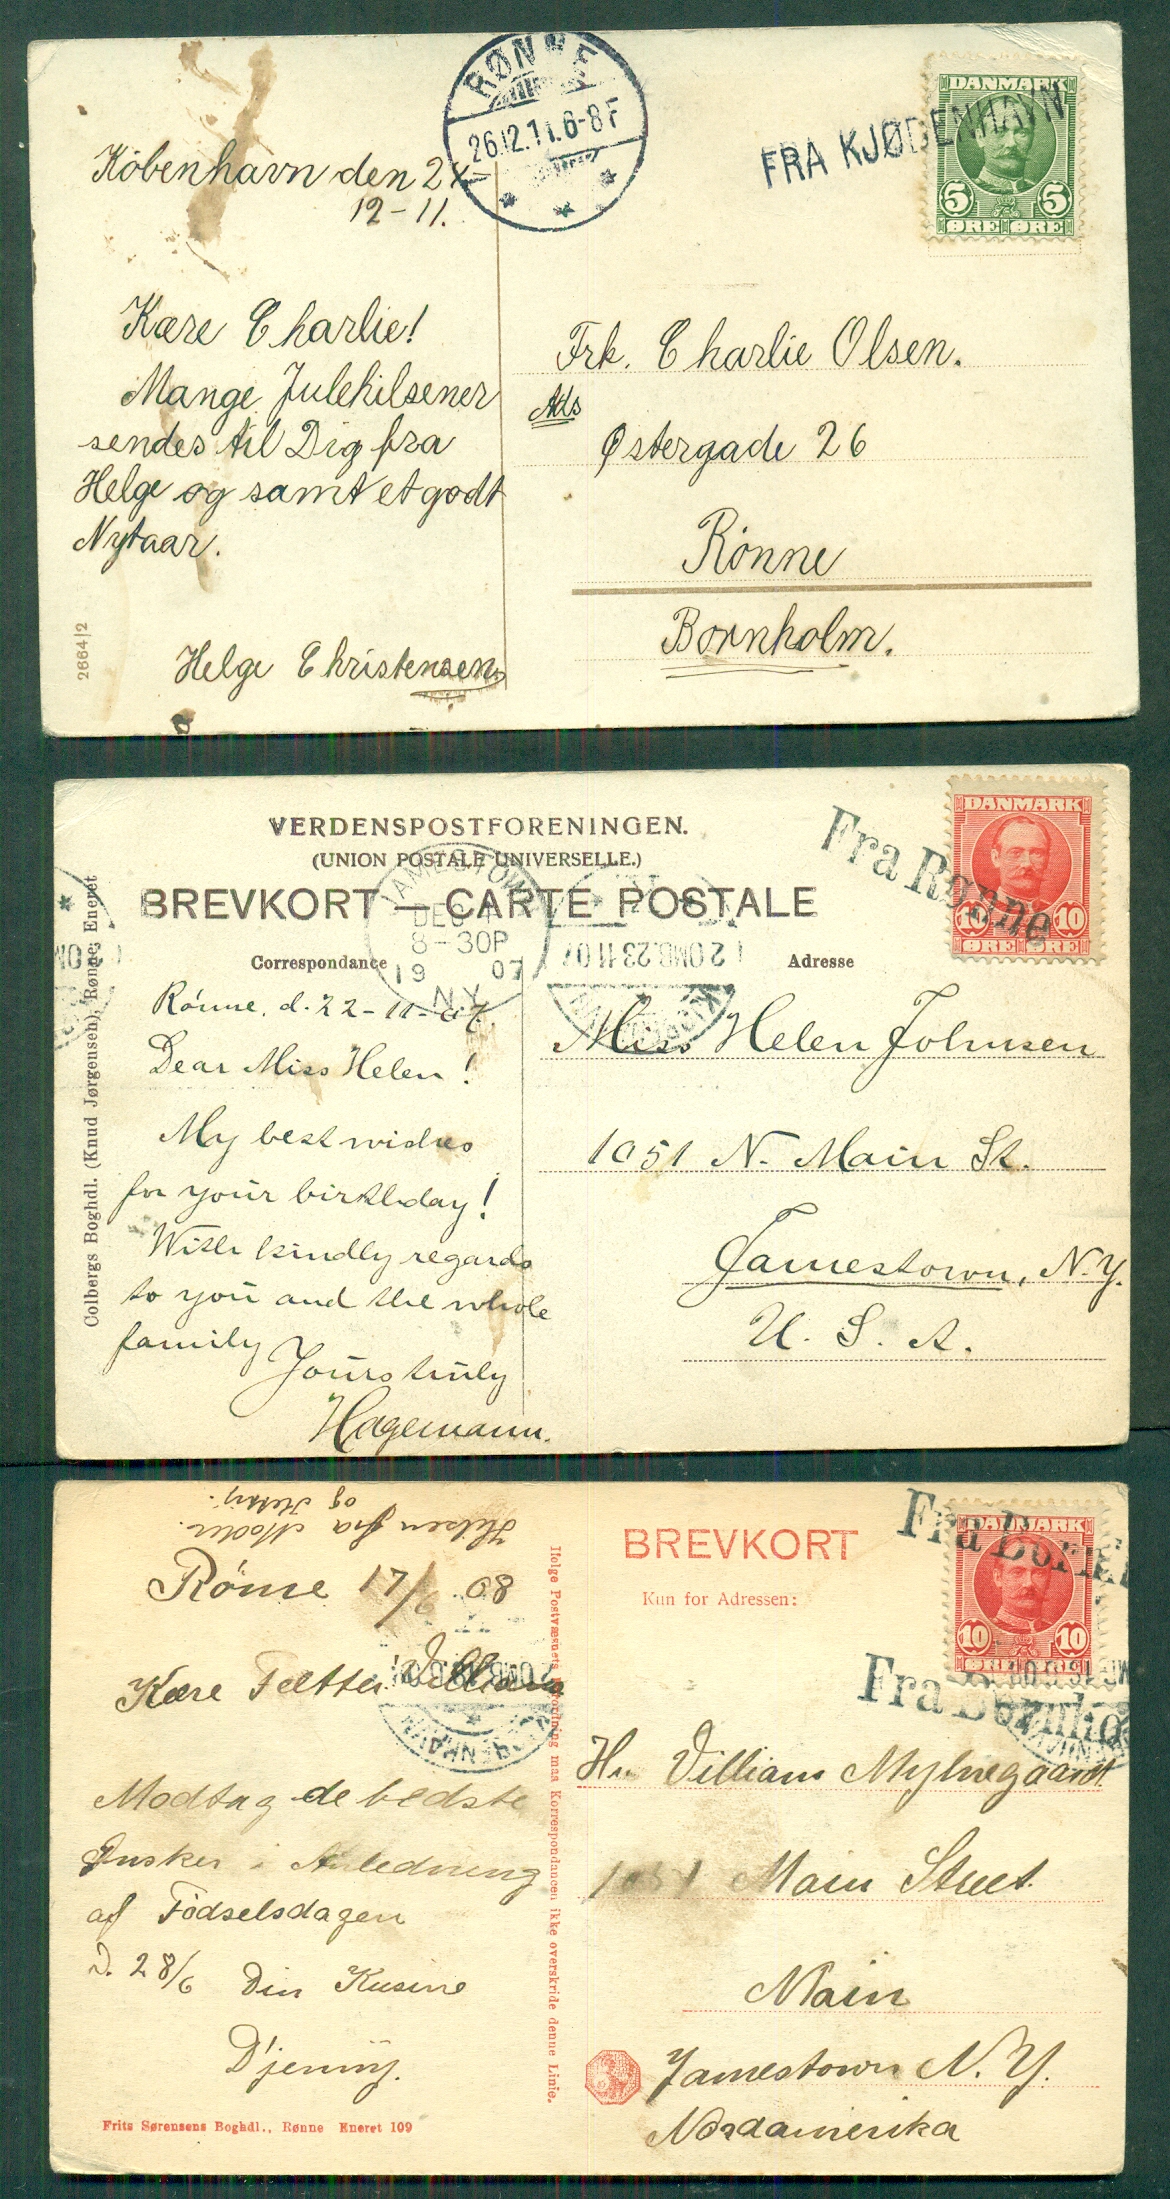 RØNNE
26.12.11.6-8F
FRA KJØBENHAVN
DANMARK
5 5
ØRE ØRE
København den 24-
12-11.
Kære Charlie!
Mange Julehilsener
sendes til Dig fra
Helge og samt et godt
Nytaar.
Helge Christensen
2664|2
Frk. Charlie Olsen.
Ads
Østergade 26
Rönne
Bornholm.
VERDENSPOSTFORENINGEN.
(UNION POSTALE UNIVERSELLE.)
BREVKORT — CARTE POSTALE
Correspondance
Adresse
Fra Rønne
DANMARK
10 10
ØRE ØRE
JAMESTOWN
DEC
8-30P
19 07
N.Y.
2 OMB. 23 11 07
Colbergs Boghdl. (Knud Jørgensen), Rønne, Eneret
Rönne, d. 22-11-07.
Dear Miss Helen!
My best wishes
for your birthday!
With kindly regards
to you and the whole
family
Yours truly
Hagemann.
Miss Helen Johnsen
1051 N. Main St.
Jamestown, N.Y.
U. S. A.
Hilsen fra Moder.
og
BREVKORT
Kun for Adressen:
Fra Bornh
DANMARK
10 10
Fra Bornho
KJØBENHAVN
Rönne 17/6 08
Kære Fætter William
Modtag de bedste
Ønsker i Anledning
af Födselsdagen
d. 28/6 Din Kusine
D'jenny.
Ifølge Postvæsnets Forordning maa Korrespondancen ikke overskride denne Linie.
Frits Sørensens Boghdl., Rønne Eneret 109
Hr. Villiam Myhregaardt
1051 Main Street
Main
Jamestown N. Y.
Nordamerika